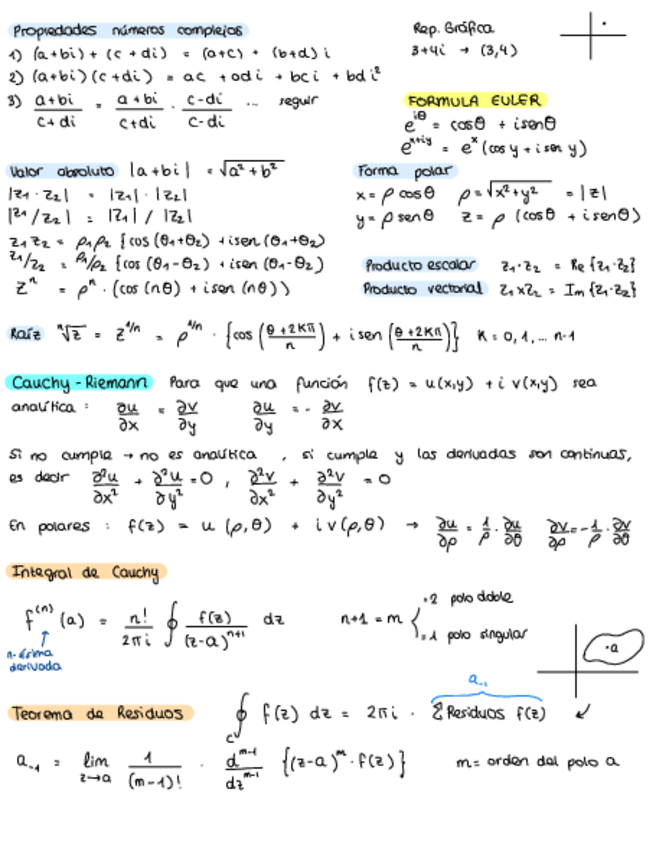 Propiedades números complejos
Rep. Gráfica
3+4i → (3,4)
1) (a+bi) + (c+di) = (a+c) + (b+d)i
2) (a+bi)(c+di) = ac + adi + bci + bdi²
3) (a+bi)/(c+di) = (a+bi)/(c+di) · (c-di)/(c-di) ... seguir
FORMULA EULER
e^{iθ} = cosθ + isenθ
e^{x+iy} = e^x (cos y + i sen y)
Valor absoluto |a+bi| = √(a²+b²)
|z1 · z2| = |z1| · |z2|
|z1/z2| = |z1| / |z2|
z1 z2 = ρ1ρ2 {cos(θ1+θ2) + isen(θ1+θ2)
z1/z2 = ρ1/ρ2 {cos(θ1-θ2) + isen(θ1-θ2)
z^n = ρ^n · (cos(nθ) + isen(nθ))
Forma polar
x = ρ cosθ ρ = √(x²+y²) = |z|
y = ρ senθ z = ρ (cosθ + isenθ)
Producto escalar z1·z2 = Re{z1·z2}
Producto vectorial z1xz2 = Im{z1·z2}
Raíz ^n√z = z^{1/n} = ρ^{1/n} · {cos((θ+2Kπ)/n) + isen((θ+2Kπ)/n)} K = 0, 1, ... n-1
Cauchy-Riemann Para que una función f(z) = u(x,y) + i v(x,y) sea
analítica : ∂u/∂x = ∂v/∂y ∂u/∂y = - ∂v/∂x
Si no cumple → no es analítica , si cumple y las derivadas son continuas,
es decir ∂²u/∂x² + ∂²u/∂y² = 0 , ∂²v/∂x² + ∂²v/∂y² = 0
En polares : f(z) = u(ρ,θ) + i v(ρ,θ) → ∂u/∂ρ = 1/ρ · ∂u/∂θ ∂v/∂ρ = - 1/ρ · ∂v/∂θ
Integral de Cauchy
f^{(n)}(a) = n!/(2πi) ∮ f(z)/(z-a)^{n+1} dz
n+1 = m { ·2 polo doble
=1 polo singular
n-ésima
derivada
·a
a₋₁
Teorema de Residuos ∮_C f(z) dz = 2πi · Σ Residuos f(z) ↙
a₋₁ = lim_{z→a} 1/(m-1)! · d^{m-1}/dz^{m-1} {(z-a)^m · f(z)} m = orden del polo a